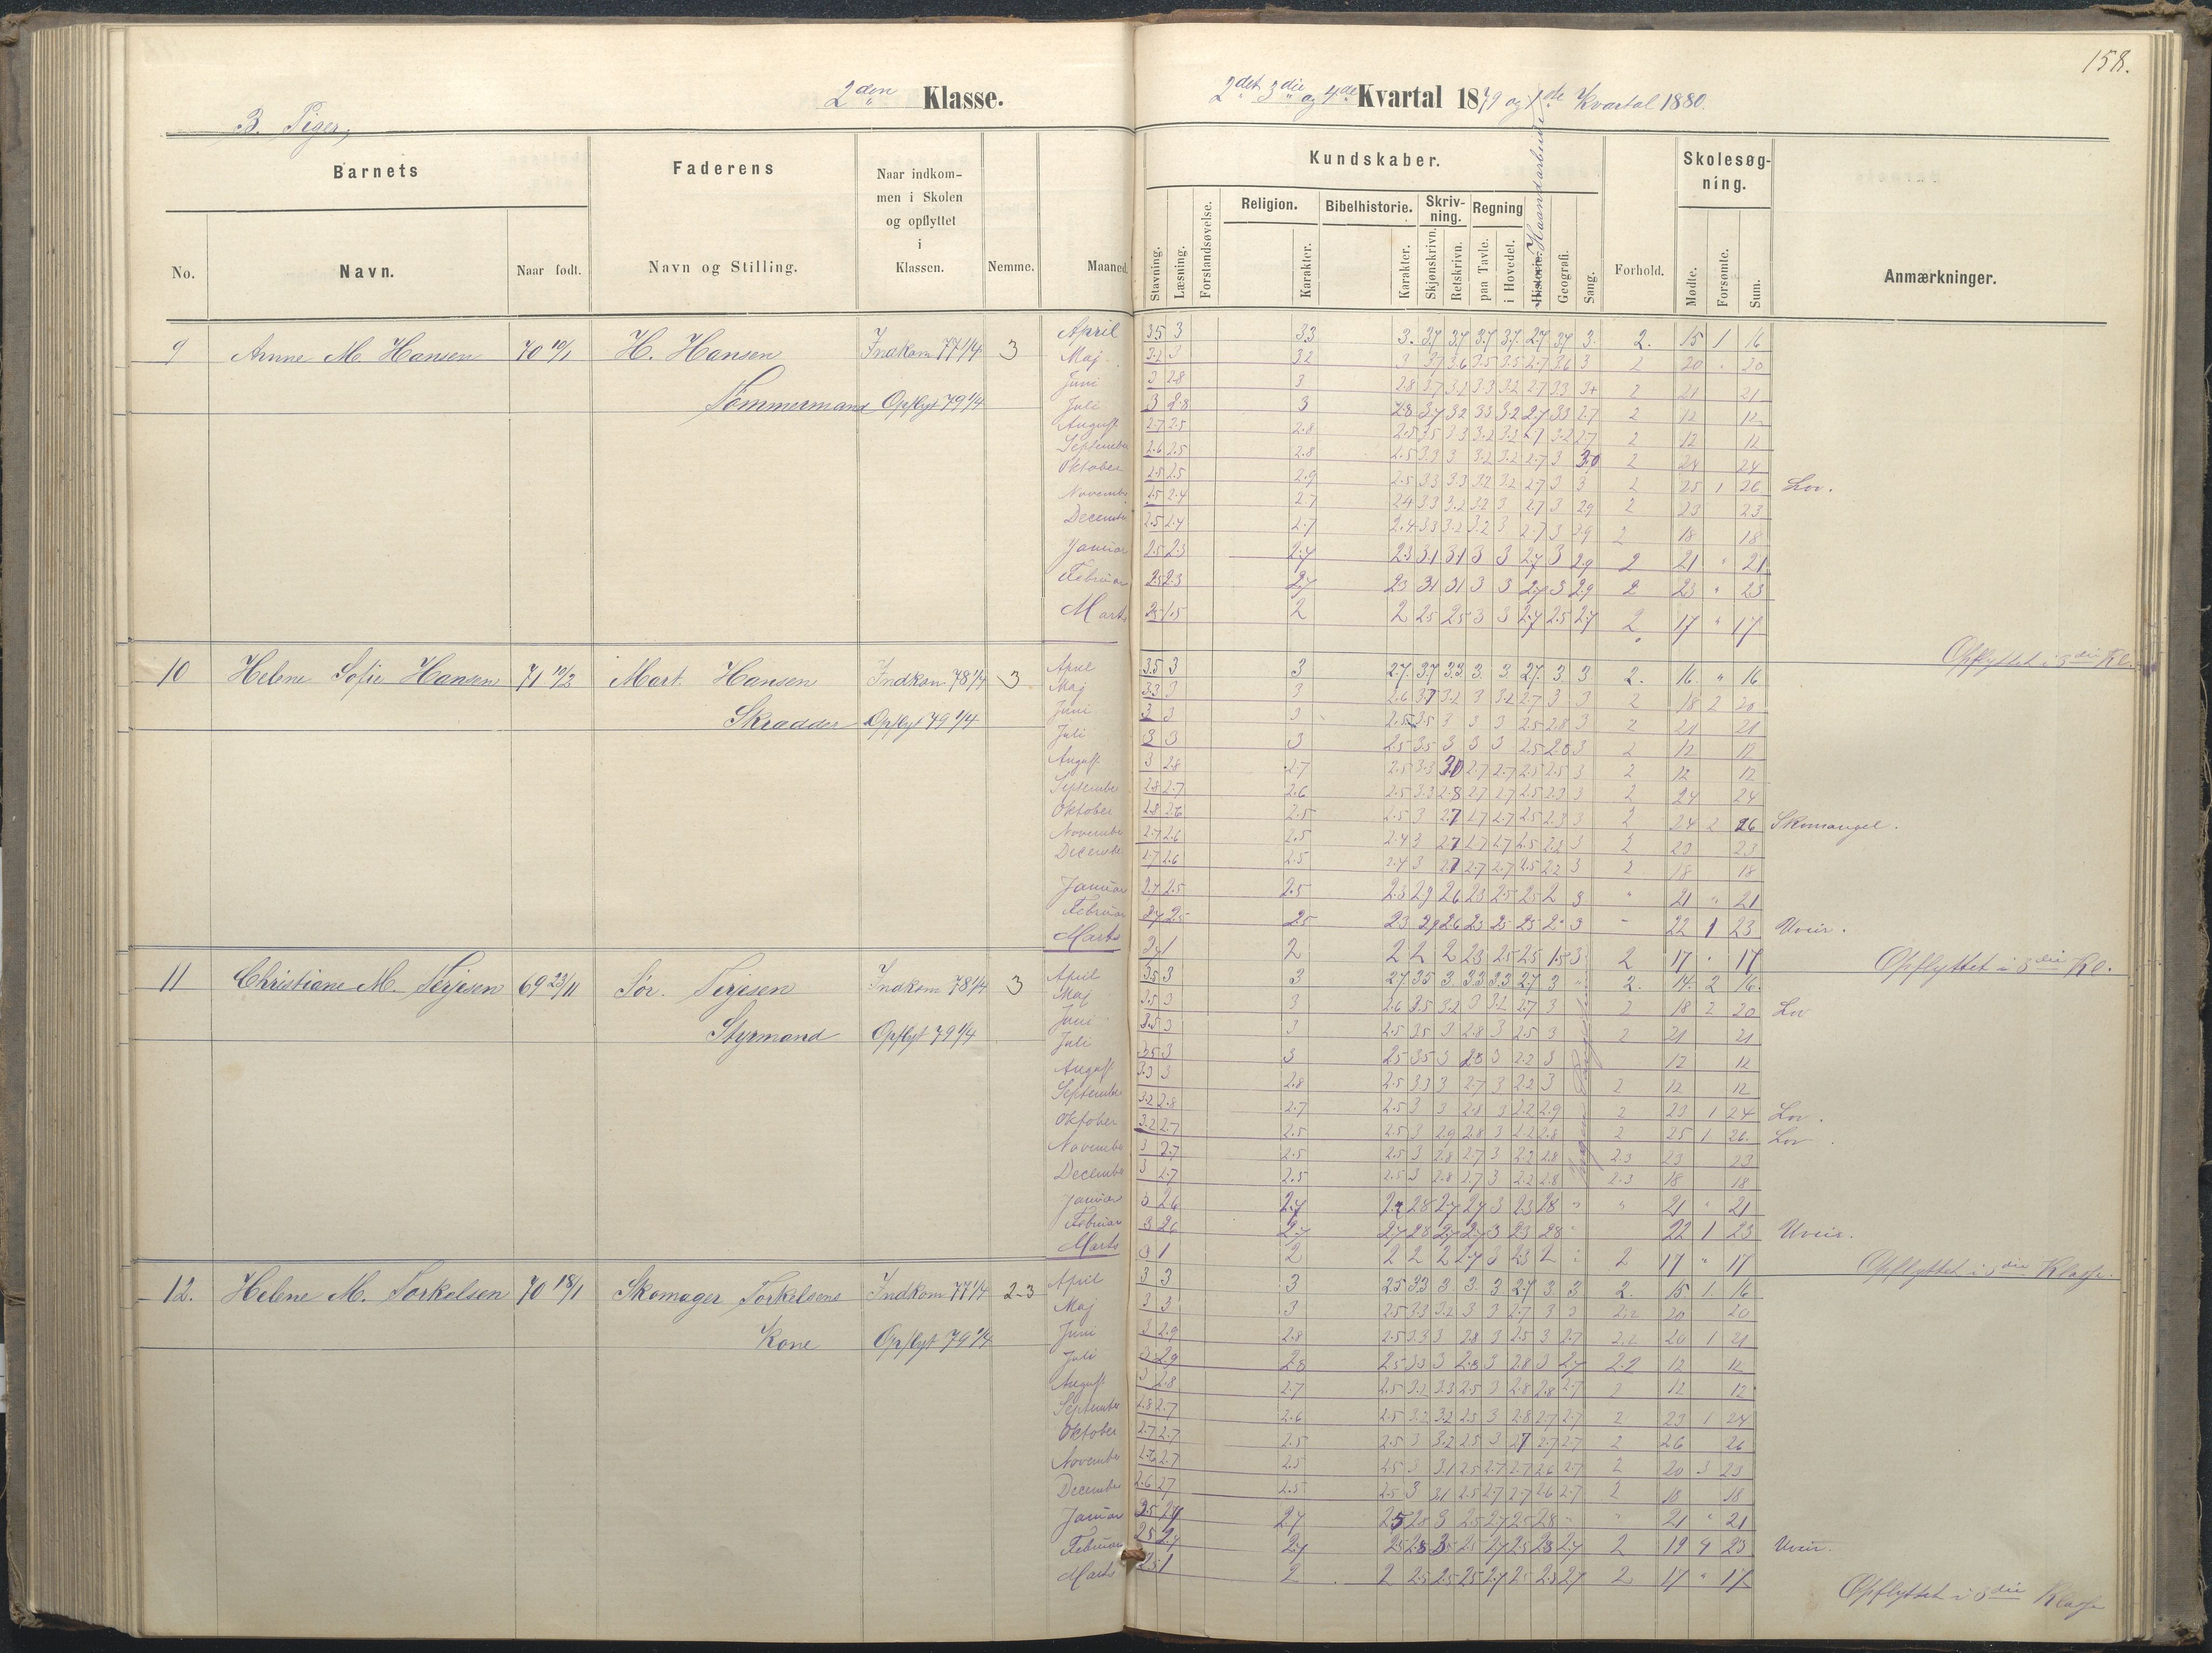 158.
2den Klasse.
2det 3die og 4de Kvartal 1879 og 1de Kvartal 1880.
B. Piger,
Barnets
Faderens
Naar indkom-
men i Skolen
og opflyttet
i
Klassen.
Nemme.
Maaned.
No.
Navn.
Naar født.
Navn og Stilling.
Kundskaber.
Skolesøg-
ning.
Religion.
Bibelhistorie.
Skriv-
ning.
Regning
Stavning.
Læsning.
Forstandsøvelse.
Karakter.
Karakter.
Skjønskrivn.
Retskrivn.
paa Tavle.
i Hovedet.
Historie.
Haandarbeide
Geografi.
Sang.
Forhold.
Mødte.
Forsømte.
Sum.
Anmærkninger.
9 Anne M. Hansen 70 10/1 H. Hansen Indkom 77 1/4 3
Tømmermand Opflyt 79 1/4
April 3.5 3 3.3 3. 3.7 3.7 3.7 3.7 2.7 3.7 3. 2. 15 1 16
Maj 3.2 3 3.2 3 3.7 3.6 3.5 3.5 2.7 3.6 3 2 20 " 20
Juni 3 2.8 3 2.8 3.7 3.2 3.3 3.2 2.7 3.3 3+ 2 21 21
Juli 3 2.8 3 2.8 3.7 3.2 3.3 3.2 2.7 3.3 2.7 2 12 12
August 2.7 2.5 2.8 2.5 3.5 3.3 3.2 3.2 2.7 3.2 2.7 2 12 12
September 2.6 2.5 2.8 2.5 3.3 3 3.2 3.2 2.7 3 3.0 2 24 24
Oktober 2.5 2.5 2.9 2.5 3.3 3.3 3.2 3.2 2.7 3 3 2 25 1 26 Lov.
November 2.5 2.4 2.7 2.4 3.3 3.2 3.2 3 2.7 3 2.9 2 23 23
December 2.5 2.4 2.7 2.4 3.3 3.2 3.2 3 2.7 3 2.9 2 18 18
Januar 2.5 2.3 2.7 2.3 3.1 3.1 3 3 2.7 3 2.9 2 21 " 21
Februar 2.5 2.3 2.7 2.3 3.1 3.1 3 3 2.7 3 2.9 2 23 " 23
Marts 2.5 1.5 2 2 2.5 2.5 3 3 2.7 2.5 2.7 2 17 " 17
Opflyttet i 3die Kl.
10 Helene Sofie Hansen 71 10/2 Mart. Hansen Indkom 78 1/4 3
Skrædder Opflyt 79 1/4
April 3.5 3 3 2.7. 3.7 3.3. 3. 3. 2.7. 3 3 2. 16. " 16
Maj 3.3 3 3 2.6 3.7 3.2 3 3.2 2.7 3 3 2 18 2 20
Juni 3 3 3 2.5 3.5 3 3 3 2.5 2.8 3 2 21 21
Juli 3 3 3 2.5 3.5 3 3 3 2.5 2.8 3 2 12 12
August 3 2.8 2.7 2.5 3.3 3.0 2.7 2.7 2.5 2.5 3 2 12 12
September 2.8 2.7 2.6 2.5 3.3 2.8 2.7 2.7 2.5 2.3 3 2 24 24
Oktober 2.8 2.6 2.5 2.5 3 2.7 2.7 2.7 2.5 2.3 3 2 24 2 26 Skomangel.
November 2.7 2.6 2.5 2.4 3 2.7 2.7 2.7 2.5 2.2 3 2 23 23
December 2.7 2.6 2.5 2.4 3 2.7 2.7 2.7 2.5 2.2 3 2 18 18
Januar 2.7 2.5 2.5 2.3 2.9 2.6 2.3 2.5 2.5 2 3 " 21 " 21
Februar 2.7 2.5 2.5 2.3 2.9 2.6 2.3 2.5 2.5 2 3 " 22 1 23 Uveir.
Marts 2.7 1 2 2 2 2 2.3 2.5 2.5 1.5 3 2 17 " 17
Opflyttet i 3die Kl.
11 Christiane M. Terjesen 69 23/11 Sør. Terjesen Indkom 78 1/4 3
Styrmand Opflyt 79 1/4
April 3.5 3 3 2.7 3.5 3. 3.3 3.3 2.7 3 " 2. 14. 2 16.
Maj 3.5 3 3 2.6 3.5 3.2 3 3.2 2.7 3 2 18 2 20 Lov
Juni 3.5 3 3 2.5 3.5 3 2.8 3 2.5 3 2 21 21
Juli 3.5 3 3 2.5 3.5 3 2.8 3 2.2 3 12 12
August 3.3 3 2.8 2.5 3.3 3 2.7 3 2.2 3 2 12 12
September 3.2 2.8 2.7 2.5 3 3 2.8 3 2.2 2.9 2 23 1 24 Lov.
Oktober 3.2 2.7 2.5 2.5 3 2.9 2.8 3 2.2 2.8 2 25 1 26. Lov.
November 3 2.7 2.5 2.5 3 2.8 2.7 3 2.2 2.8 2.3 23 23
December 3 2.7 2.5 2.5 3 2.8 2.7 3 2.2 2.8 2.3 18 18
Januar 3 2.6 2.7 2.7 2.8 2.7 2.7 3 2.3 2.8 " " 21 " 21
Februar 3 2.6 2.7 2.7 2.8 2.7 2.7 3 2.3 2.8 " 22 1 23 Uveir.
Marts 3 1 2 2 2 2 2.7 3 2.3 2 " 2 17 " 17
Opflyttet i 3die Klasse.
12. Helene M. Torkelsen 70 18/1 Skomager Torkelsens Indkom 77 1/4 2-3
Kone Opflyt 79 1/4
April 3 3 3 2.5 3.3 3. 3. 3 2.7 3. 3. 2. 15 1. 16
Maj 3 3 3 2.5 3.3 3.2 3 3 2.7 3 3 2.2 20 20
Juni 3 2.9 2.8 2.5 3.3 3 2.8 3 2.5 3 2.7 2.2 20 1 21
Juli 3 2.9 2.8 2.5 3.3 3 2.8 3 2.8 3 2.7 2.2 12 12
August 3 2.8 2.7 2.5 3.2 3.3 2.5 3 2.8 2.8 2.7 2 12 12
September 2.8 2.7 2.6 2.5 3.2 3.2 2.5 3 2.8 2.7 2.7 2 23 1 24
Oktober 2.7 2.7 2.5 2.5 3 3.2 2.5 3 2.7 2.7 2.7 2 26 26
November 2.6 2.7 2.5 2.5 3 3.1 2.5 2.7 2.7 2.6 2.7 2 20 3 23
December 2.6 2.7 2.5 2.5 3 3.1 2.5 2.7 2.7 2.6 2.7 2 18 18
Januar 2.5 2.7 2.7 2.5 2.5 3 2.5 2.7 2.5 2.8 " " 21 " 21
Februar 2.5 2.7 2.7 2.5 2.8 3 2.5 2.7 2.5 2.8 2.7 2 19 4 23 Uveir.
Marts 2.5 1 2 2 2.5 2.5 2.5 2.7 2.5 2.3 2.7 2 17 " 17
Opflyttet i 3die Klasse